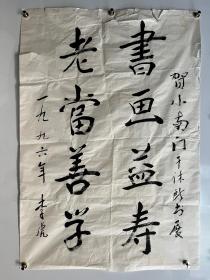 賀小南门干休所书展
書画益寿
老當善学
一九九六年 李虎